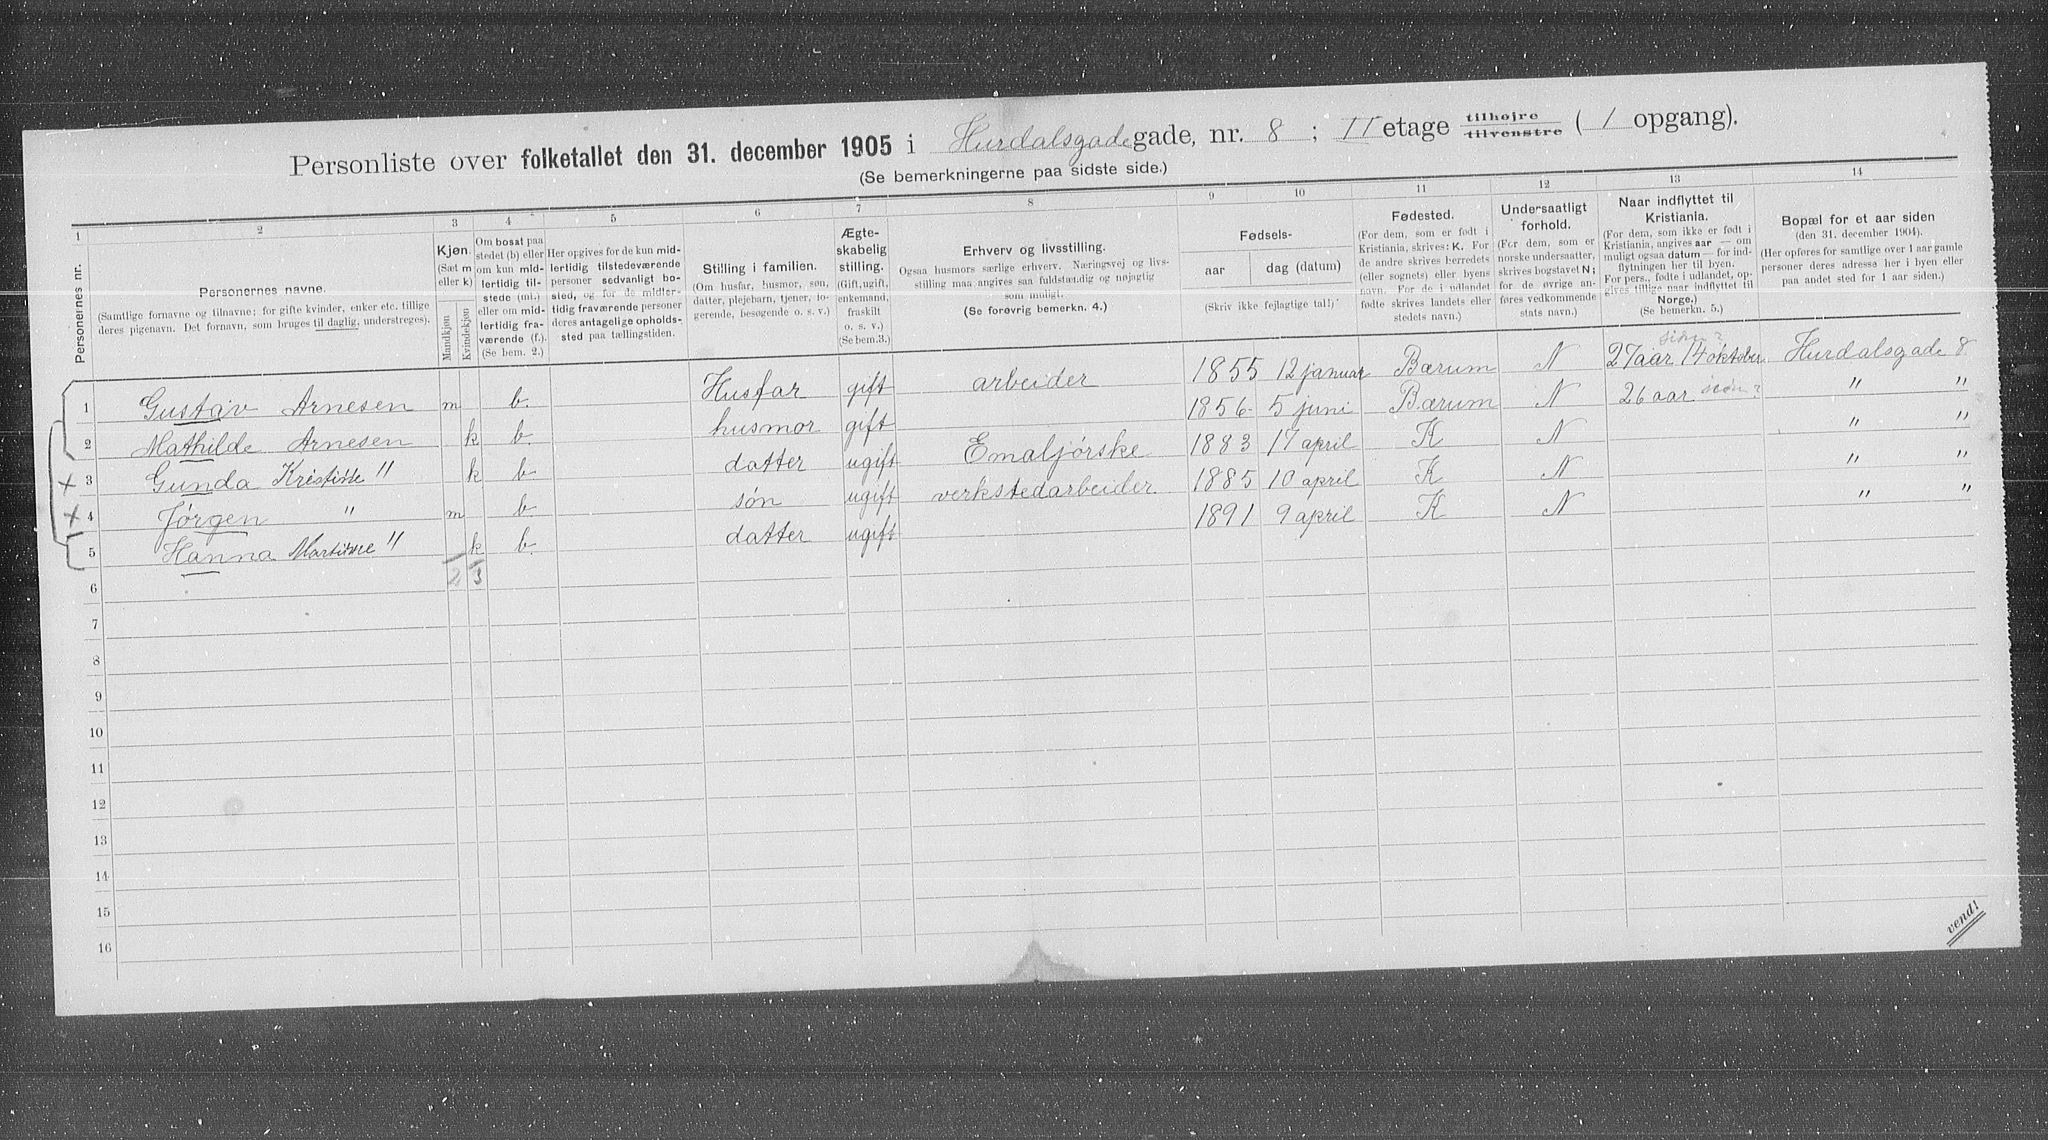 Personliste over folketallet den 31. december 1905 i Hurdalsgade gade, nr. 8 ; II etage tilhøjre tilvenstre ( 1 opgang).
(Se bemerkningerne paa sidste side.)
1 2 3 4 5 6 7 8 9 10 11 12 13 14
Personernes nr.
Personernes navne.
(Samtlige fornavne og tilnavne; for gifte kvinder, enker etc. tillige
deres pigenavn. Det fornavn, som bruges til daglig, understreges).
Kjøn.
(Sæt m
eller k)
Mandkjøn
Kvindekjøn
Om bosat paa
stedet (b) eller
om kun mid-
lertidig til-
stede (mt.)
eller om mid-
lertidig fra-
værende (f.).
(Se bem. 2.)
Her opgives for de kun mid-
lertidig tilstedeværende
personer sedvanligt bo-
sted, og for de midler-
tidig fraværende personer
deres antagelige opholds-
sted paa tællingstiden.
Stilling i familien.
(Om husfar, husmor, søn,
datter, plejebarn, tjener, lo-
gerende, besøgende o. s. v.)
Ægte-
skabelig
stilling.
(Gift, ugift,
enkemand,
fraskilt
o. s. v.)
(Se bem.3.)
Erhverv og livsstilling.
Ogsaa husmors særlige erhverv. Næringsvej og livs-
stilling maa angives saa fuldstændig og nøjagtig
som muligt.
(Se forøvrig bemerkn. 4.)
Fødsels-
aar
dag (datum)
(Skriv ikke fejlagtige tal!)
Fødested.
(For dem, som er født i
Kristiania, skrives: K. For
de andre skrives herredets
(eller sognets) eller byens
navn. For de i udlandet
fødte skrives landets eller
stedets navn.)
Undersaatligt
forhold.
(For dem, som er
norske undersaatter,
skrives bogstavet N;
for de øvrige an-
føres vedkommende
stats navn.)
Naar indflyttet til
Kristiania.
(For dem, som ikke er født i
Kristiania, angives aar — om
muligt ogsaa datum — for ind-
flytningen her til byen.
For pers., fødte i udlandet, op-
gives tillige naar indflyttet til
Norge.)
(Se bemerkn. 5.)
Bopæl for et aar siden
(den 31. december 1904).
(Her opføres for samtlige over 1 aar gamle
personer deres adresse her i byen eller
paa andet sted for 1 aar siden.)
1 Gustav Arnesen m b. Husfar gift arbeider 1855 12 januar Bærum N 27 aar 14 oktober Hurdalsgade 8
2 Mathilde Arnesen k b. husmor gift 1856 5 juni Bærum N 26 aar " "
x 3 Gunda Kristine " k b. datter ugift Emaljørske 1883 17 april K N " "
x 4 Jørgen " m b. søn ugift verkstedarbeider 1885 10 april K N " "
5 Hanna Martine " k b. datter ugift 1891 9 april K N " "
6 2 3
7
8
9
10
11
12
13
14
15
16
vend!